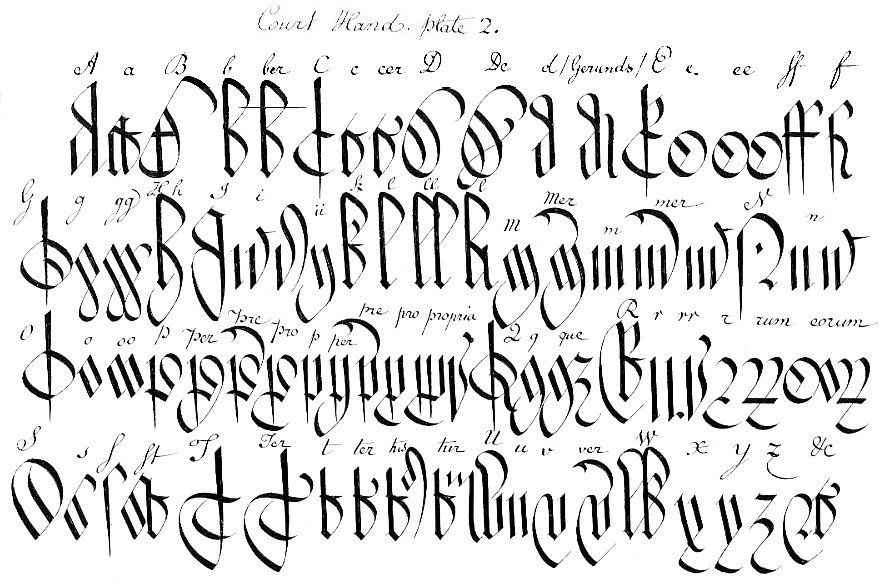 Court Hand. plate 2.
A a B b ber C c cer D De d/Gerunds/ E e. ee ff f
G g gg H h I i ii k l ll M Mer m mer N n
O o oo p Per Pre pro p per pre pro propria Q q que R r rr r rum eorum
S s f ft T Ter t ter his tur U u v ver W x y z &c